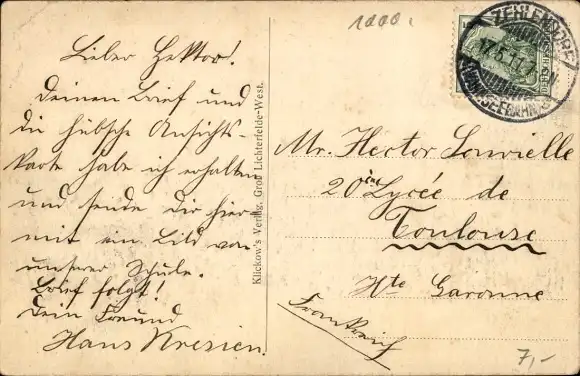 Lieber Hektor!
Deinen Brief und
die hübsche Ansichts-
karte habe ich erhalten
und sende Dir hier
mit ein Bild von
unserer Schule.
Brief folgt!
Dein Freund
Hans Kresien.
Klickow's Verlag, Groß Lichterfelde-West.
1000.
ZEHLENDORF
17.5.11.
Mr. Hector Louvielle
20 Lycée de
Toulouse
Hte Garonne
Frankreich
7,-